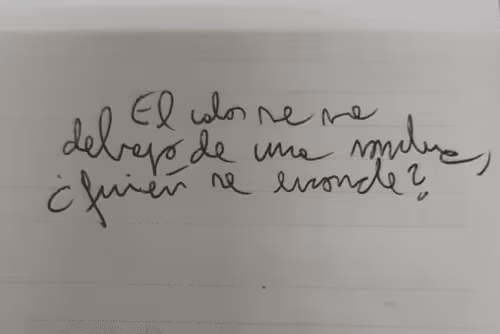 El calor se va
debajo de una sombra,
¿quién se esconde?